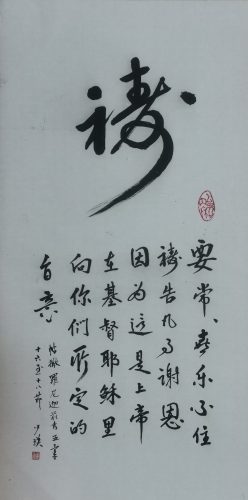 祷
要常、喜乐不住
祷告凡事谢恩
因为这是上帝
在基督耶稣里
向你们所定的
旨意
帖撒羅尼迦前书五章
十六至十八節